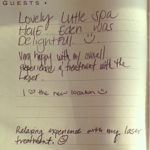 GUESTS
Lovely little spa
Half Eden was
Delightful
Very happy with my overall
experience & treatment with the
Laser.
I the new location
Relaxing experience with my laser
treatment.